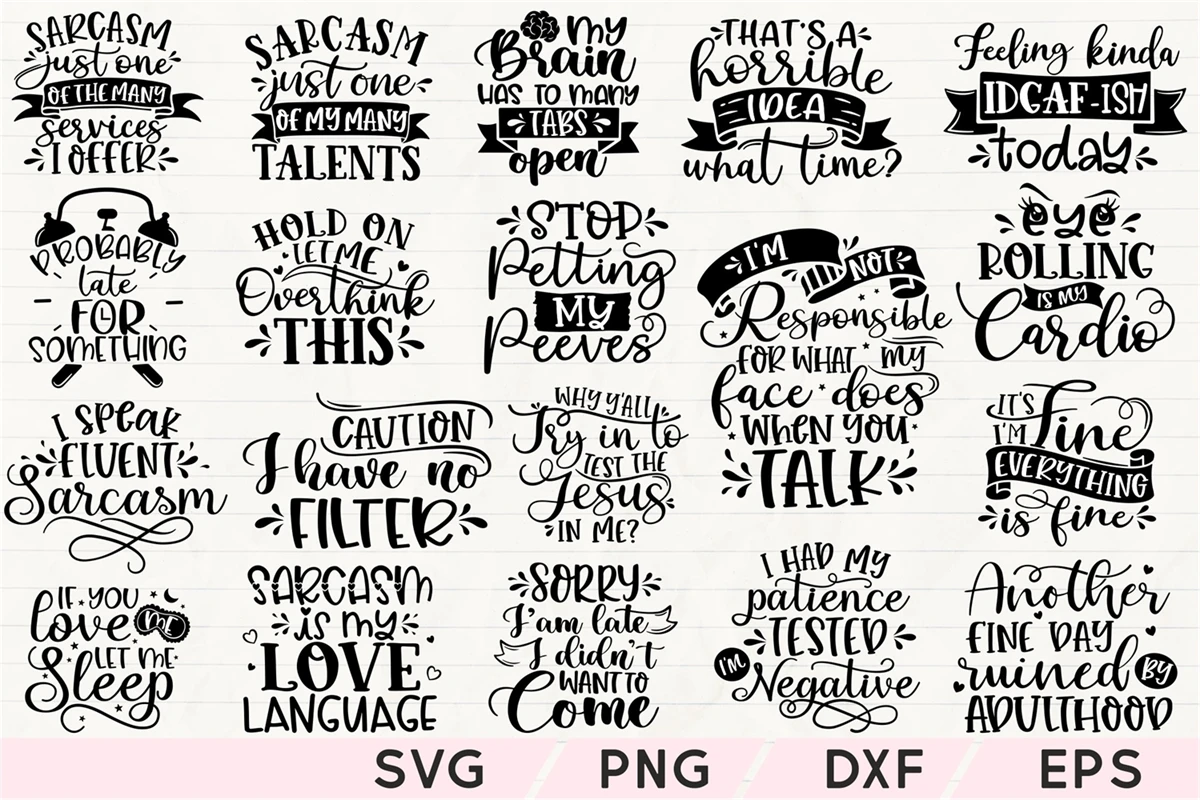 SARCASM
just one
OF THE MANY
services
I OFFER
SARCASM
just one
OF MY MANY
TALENTS
my
Brain
HAS TO MANY
TABS
open
THAT'S A
horrible
IDEA
what time?
Feeling kinda
IDGAF-ISH
today
PROBABLY
late
FOR
SOMETHING
HOLD ON
LET ME
Overthink
THIS
STOP
Petting
MY
Peeves
I'M
NOT
Responsible
FOR WHAT MY
face does
WHEN YOU
TALK
eye
ROLLING
IS MY
Cardio
I SPEAK
FLUENT
Sarcasm
CAUTION
I have no
FILTER
WHY Y'ALL
Try in to
TEST THE
Jesus
IN ME?
IT'S
I'M Fine
EVERYTHING
is fine
IF YOU
love ME
LET ME
Sleep
SARCASM
is my
LOVE
LANGUAGE
SORRY
I'am late
I didn't
WANT TO
Come
I HAD MY
patience
TESTED
I'M
Negative
Another
FINE DAY
ruined BY
ADULTHOOD
SVG / PNG / DXF / EPS